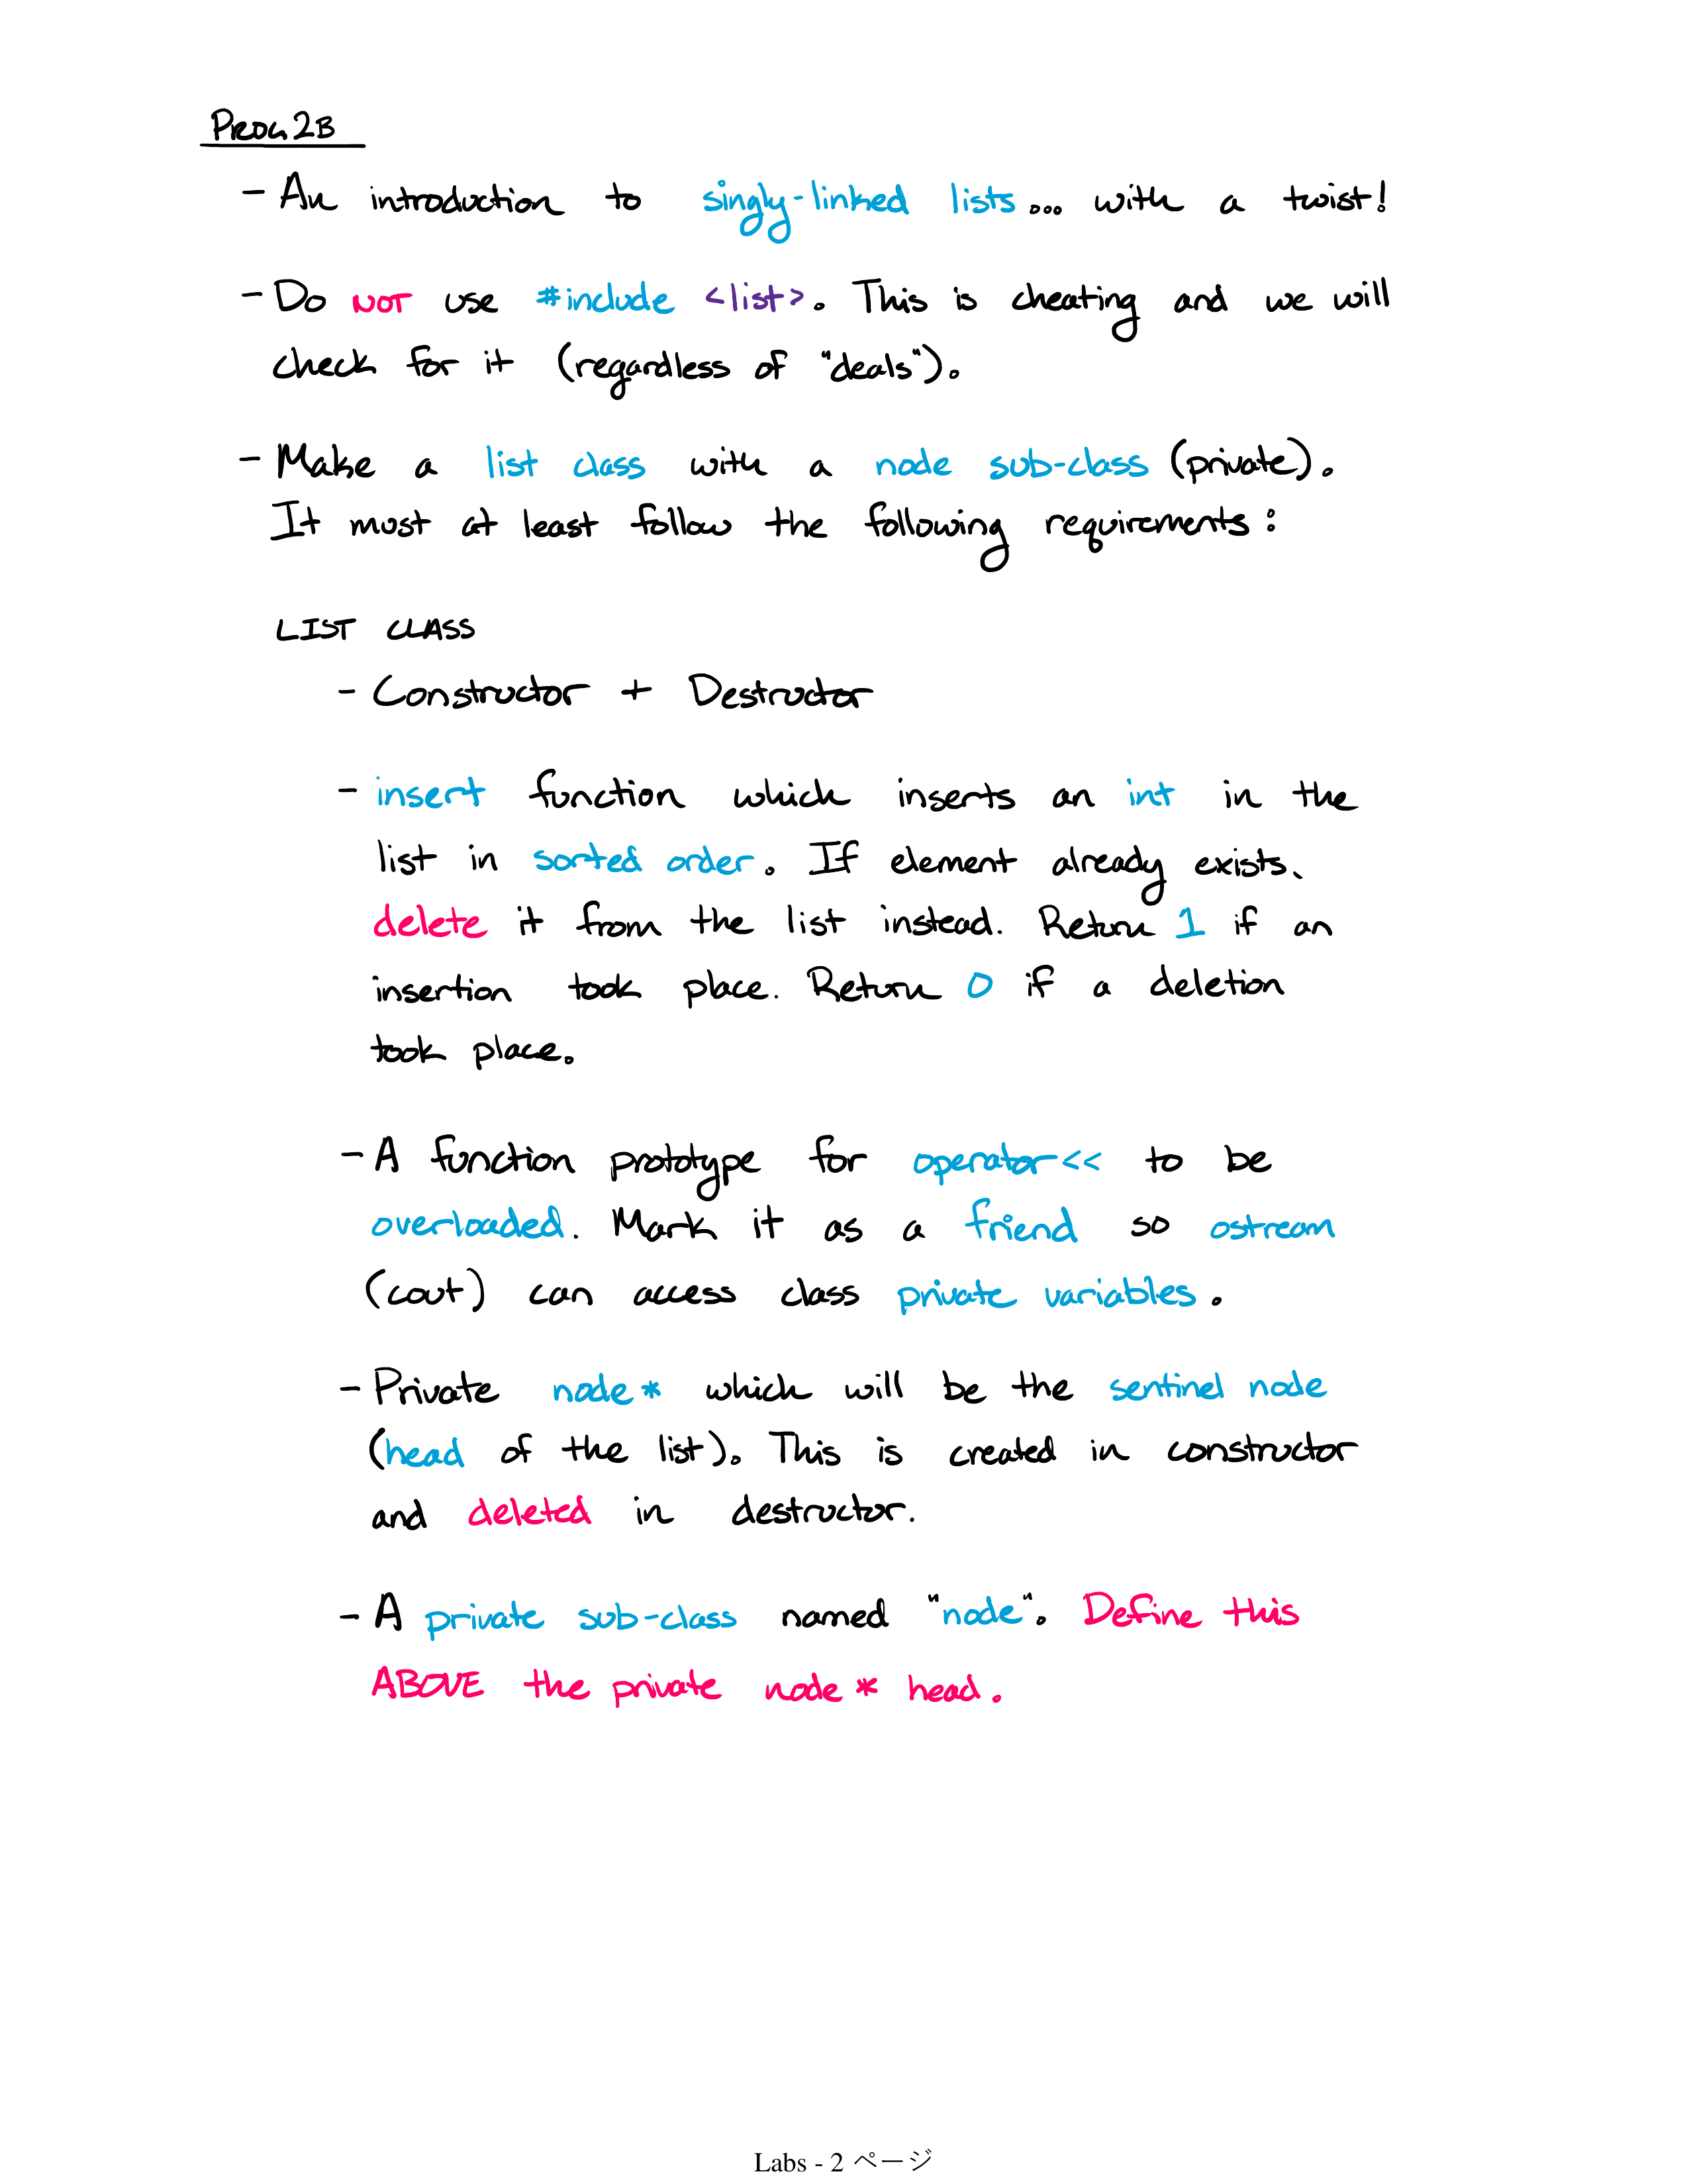 Prog 2B
- An introduction to singly-linked lists... with a twist!
- Do NOT use #include <list>. This is cheating and we will
check for it (regardless of "deals").
- Make a list class with a node sub-class (private).
It must at least follow the following requirements:
LIST CLASS
- Constructor + Destructor
- insert function which inserts an int in the
list in sorted order. If element already exists,
delete it from the list instead. Return 1 if an
insertion took place. Return 0 if a deletion
took place.
- A function prototype for operator<< to be
overloaded. Mark it as a friend so ostream
(cout) can access class private variables.
- Private node* which will be the sentinel node
(head of the list). This is created in constructor
and deleted in destructor.
- A private sub-class named "node". Define this
ABOVE the private node* head.
Labs - 2 ページ